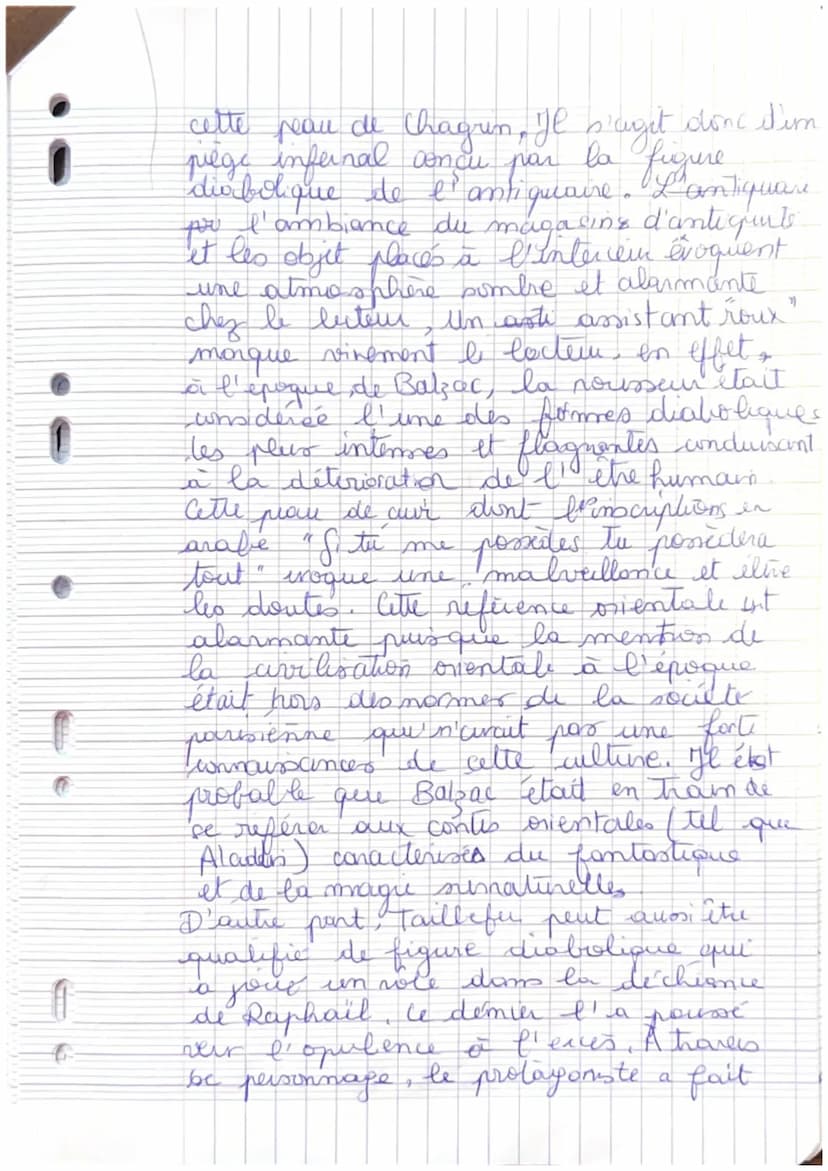 cette peau de Chagrin. Il s'agit donc d'un
piège infernal conçu par la figure
diabolique de l'antiquaire. L'antiquaire
l'ambiance du magasins d'antiquités
et les objet placés à l'intérieur évoquent
une atmosphère sombre et alarmante
chez le lecteur, Un assistant "roux"
marque vivement le lecteur, en effet,
à l'époque de Balzac, la rousseur était
considérée l'une des formes diaboliques
les plus intenses et flagrantes conduisant
à la détérioration de l'être humain.
Cette peau de cuir dont l'inscriptions en
arabe "Si tu me possèdes Tu possèdera
tout" évoque une malveillance et
les doutes. Cette référence orientale est
alarmante puisque la mention de
la civilisation orientale à l'époque
était hors des normes de la société
parisienne qui n'avait pas une forte
connaissances de cette culture. Il était
probable que Balzac était en train de
se référer aux contes orientales (tel que
Aladdin) caractérisés du fantastique
et de la magie surnaturelles
D'autre part, Taillefer peut aussi être
qualifié de figure diabolique qui
a joué un rôle dans la déchéance
de Raphaël. Ce dernier l'a poussé
vers l'opulence à l'excès. À travers
ce personnage, le protagoniste a fait